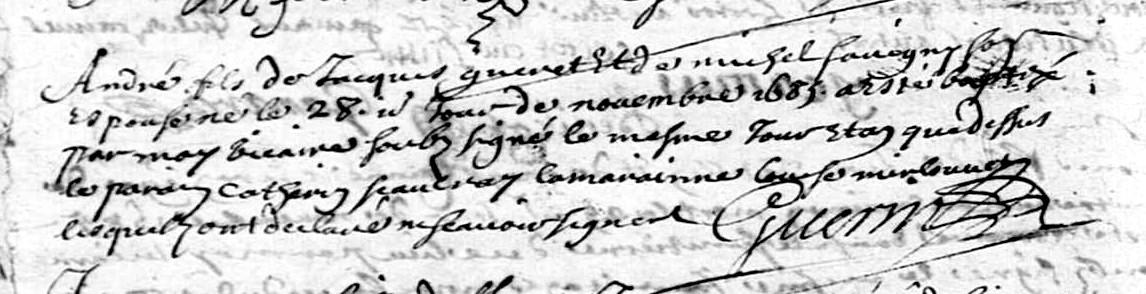 André fils de Jacques guenet et de michel sauvegny son
espouse né le 28. ie Jour de novembre 1685. a esté baptizé
par moy vicaire soubz signé le mesme Jour et an que dessus
le parain Catherin la marainne Louise
lesquelz ont declaré ne scavoir signer Guerin